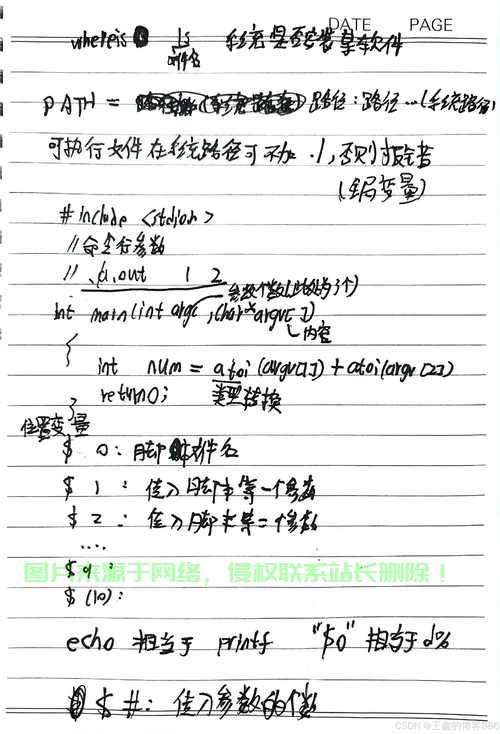 DATE PAGE
whereis ls 系统是否安装某软件
文件名
PATH = 路径:路径…(系统路径)
可执行文件在系统路径可不加 ./,否则报错
(全局变量)
#include <stdioh>
//命令行参数
// ./a.out 1 2
参数个数(此处为3个)
int main(int argc, char*argv[])
内容
{
int num = atoi(argv[1]) + atoi(argv[2])
return0; 类型转换
}
位置变量
$ 0: 脚本文件名
$ 1: 传入脚本第一个参数
$ 2: 传入脚本第二个参数
....
$ 9:
图片来源于网络,侵权联系站长删除!
$ (10):
echo 相当于 printf "$0" 相当于 d%
$ #: 传入参数的个数